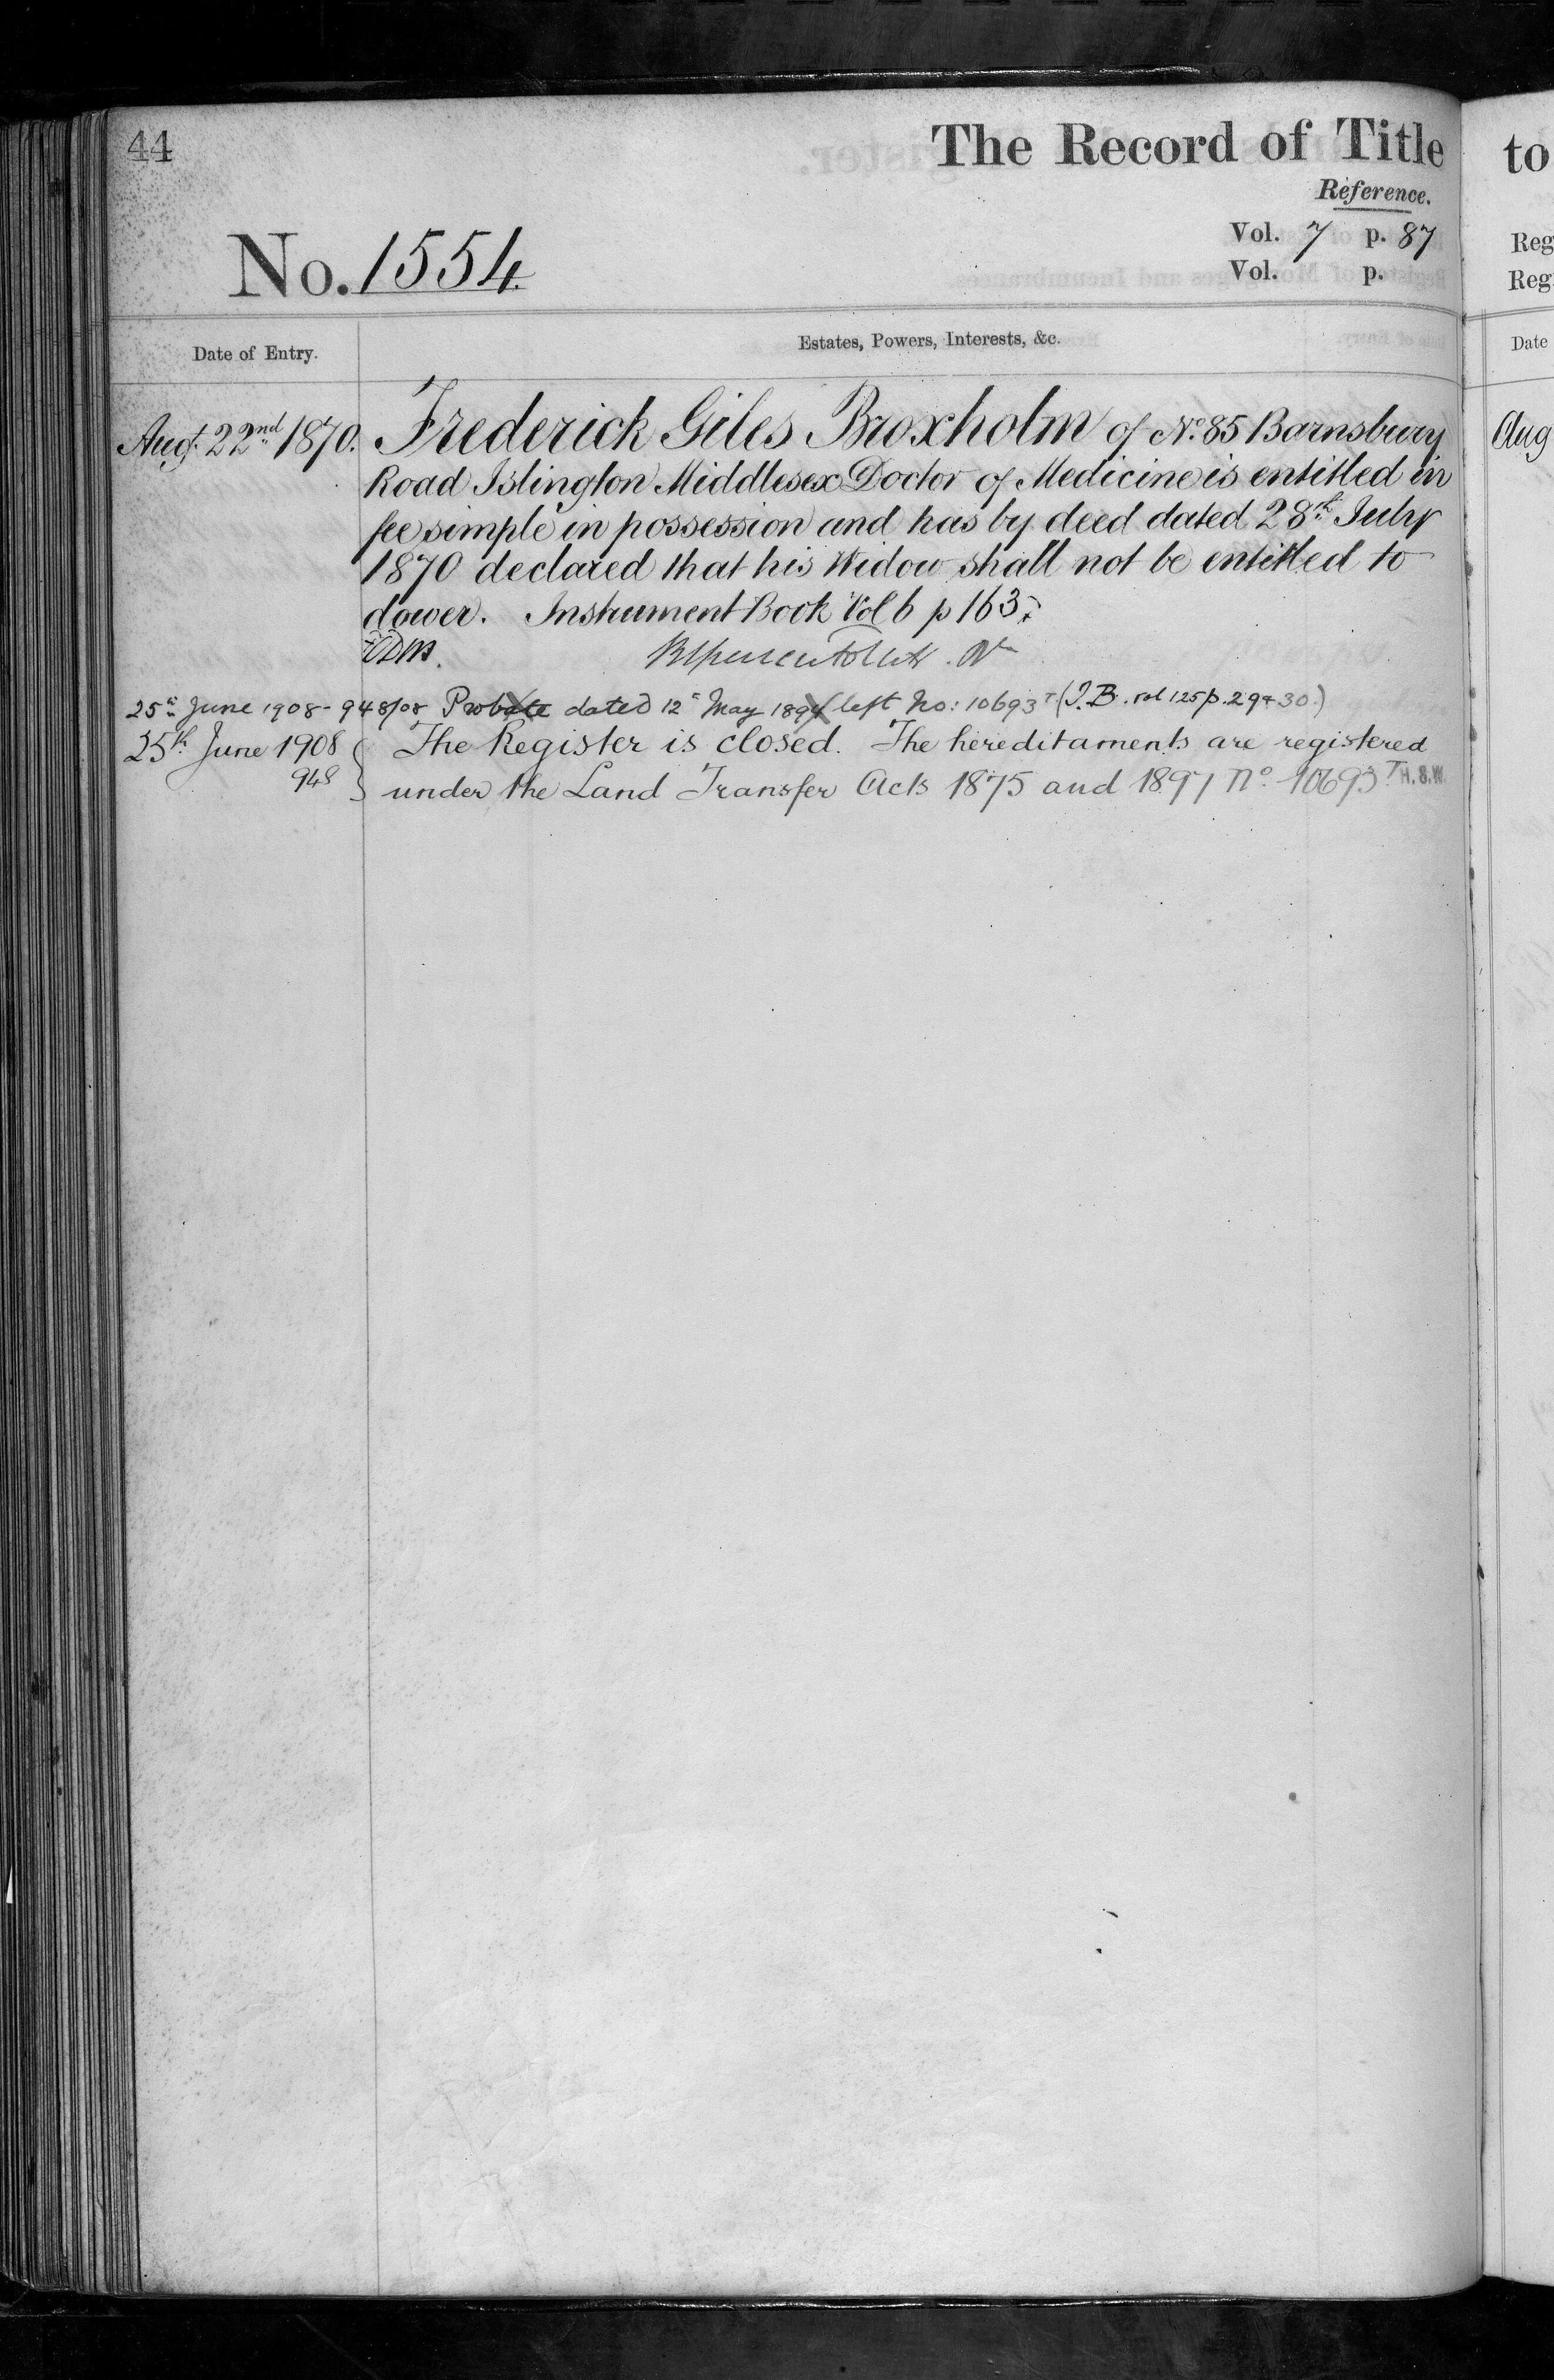 44
The Record of Title
Reference.
Vol. 7 p. 87
Vol. p.
No. 1554.
Date of Entry.
Estates, Powers, Interests, &c.
Augt. 22nd 1870.
Frederick Giles Broxholm of No. 85 Barnsbury
Road Islington Middlesex Doctor of Medicine is entitled in
fee simple in possession and has by deed dated 28th July
1870 declared that his Widow shall not be entitled to
dower. Instrument Book Vol 6 p 163.
25th June 1908 - 948/08 Probate dated 12th May 1894 left No: 10693 T (I.B. vol 125 p. 29 & 30.)
25th June 1908
948
The Register is closed. The hereditaments are registered
under the Land Transfer Acts 1875 and 1897 No. 10693 T. H.S.W.
to
Reg
Reg
Date
Aug